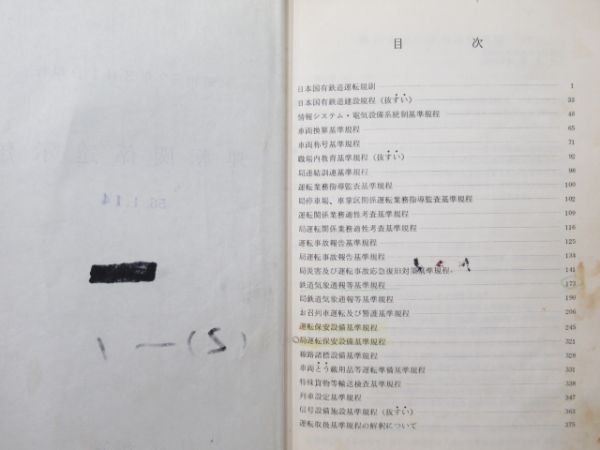 目次
日本国有鉄道運転規則 1
日本国有鉄道建設規程(抜すい) 33
情報システム・電気設備系統制基準規程 46
車両換算基準規程 65
車両称号基準規程 71
職場内教育基準規程(抜すい) 92
局連結訓練基準規程 98
運転業務指導監査基準規程 100
局停車場、車掌区関係運転業務指導監査基準規程 102
運転関係業務適性考査基準規程 109
局運転関係業務適性考査基準規程 116
運転事故報告基準規程 125
局運転事故報告基準規程 134
局災害及び運転事故応急復旧対策基準規程 141
鉄道気象通報等基準規程 173
局鉄道気象通報等基準規程 190
お召列車運転及び警護基準規程 206
運転保安設備基準規程 245
○局運転保安設備基準規程 321
線路諸標設備基準規程 328
車両とう載用品等運転準備基準規程 331
特殊貨物等輸送検査基準規程 338
列車設定基準規程 347
信号設備施設基準規程(抜すい) 363
運転取扱基準規程の解釈について 375